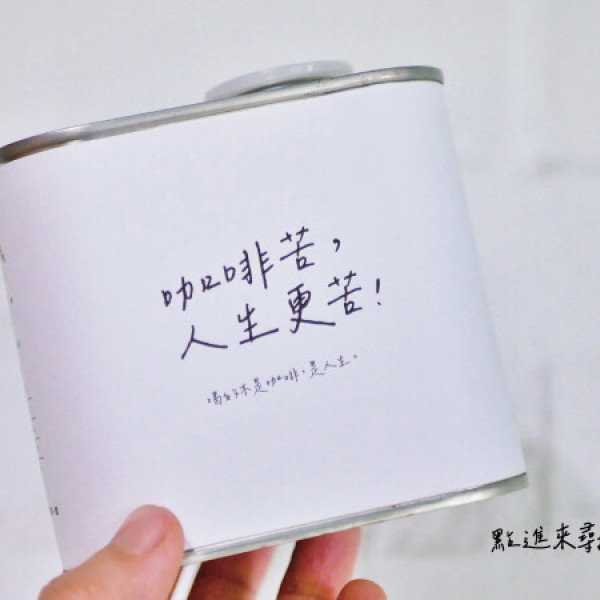 咖啡苦，
人生更苦！
喝的不是咖啡，是人生。
點進來尋